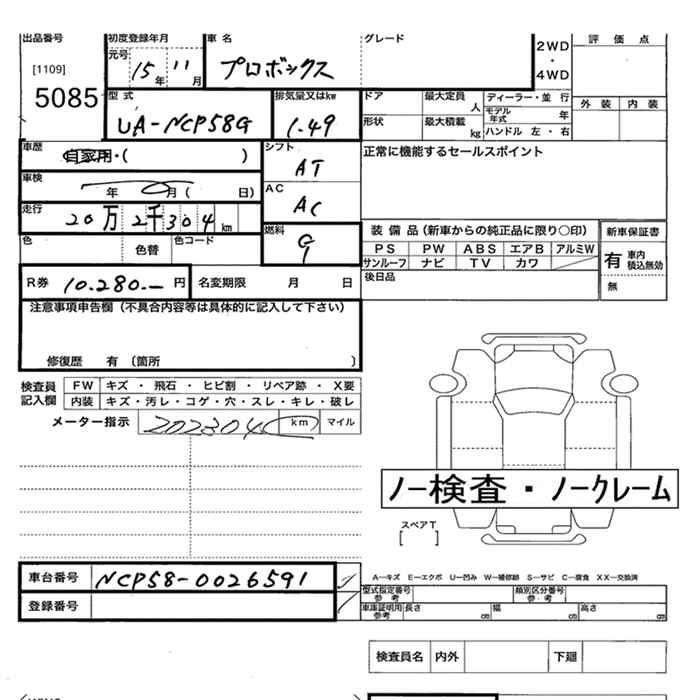 出品番号 初度登録年月 車名 グレード 2WD・4WD 評価点
[1109] 元号 15年 11月 プロボックス
5085 外装 内装
型式 排気量又はkw ドア 最大定員 人 ディーラー・並行
UA-NCP58G 1.49 形状 最大積載 kg モデル年式 年
ハンドル 左・右
車歴 自家用・( ) シフト AT 正常に機能するセールスポイント
車検 年 月( 日) AC AC
走行 20万2千304km 燃料 G 装備品(新車からの純正品に限り○印) 新車保証書
色 色替 色コード PS PW ABS エアB アルミW 有 車内積込無効
サンルーフ ナビ TV カワ 無
R券 10.280.- 円 名変期限 月 日 後日品
注意事項申告欄(不具合内容等は具体的に記入して下さい)
修復歴 有(箇所 )
検査員記入欄 FW キズ・飛石・ヒビ割・リペア跡・X要
内装 キズ・汚レ・コゲ・穴・スレ・キレ・破レ
メーター指示 202304 km マイル
ノー検査・ノークレーム
スペアT
[ ]
車台番号 NCP58-0026591
登録番号
A-キズ E-エクボ U-凹み W-補修跡 S-サビ C-腐食 XX-交換済
型式指定番号参考 類別区分番号参考
車庫証明用参考 長さ cm 幅 cm 高さ cm
検査員名 内外 下廻